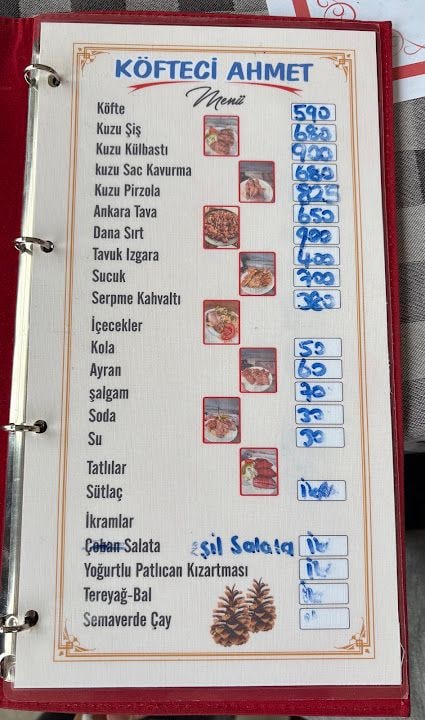 KÖFTECİ AHMET
Menü
Köfte 590
Kuzu Şiş 680
Kuzu Külbastı 900
kuzu Sac Kavurma 680
Kuzu Pirzola
Ankara Tava 650
Dana Sırt 900
Tavuk Izgara 400
Sucuk 700
Serpme Kahvaltı 320
İçecekler
Kola 50
Ayran 60
şalgam 70
Soda 30
Su 30
Tatlılar
Sütlaç
İkramlar
Çoban Salata şil Salata
Yoğurtlu Patlıcan Kızartması
Tereyağ-Bal
Semaverde Çay